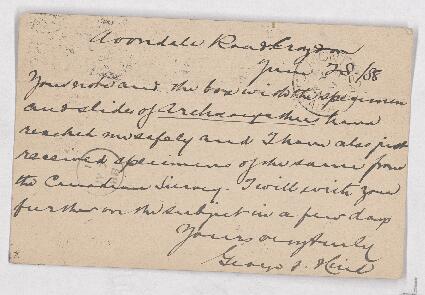 Avondale Road Croydon
June 28/88
Your note and the box with the specimen
and slides of Archaeocyathus have
reached me safely and I have also just
received specimens of the same from
the Canadian Survey. I will write you
further on the subject in a few days
Yours very truly
George J. Hinde